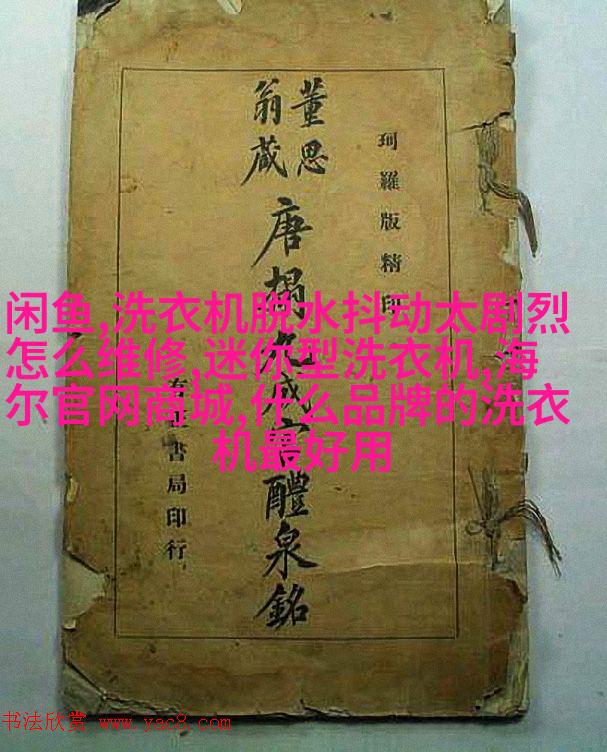 珂羅版精印
董思
翁藏
唐搨九成宮醴泉銘
書局印行
闲鱼,洗衣机脱水抖动太剧烈
怎么维修,迷你型洗衣机,海
尔官网商城,什么品牌的洗衣
机最好用
书法欣赏 www.yac8.com